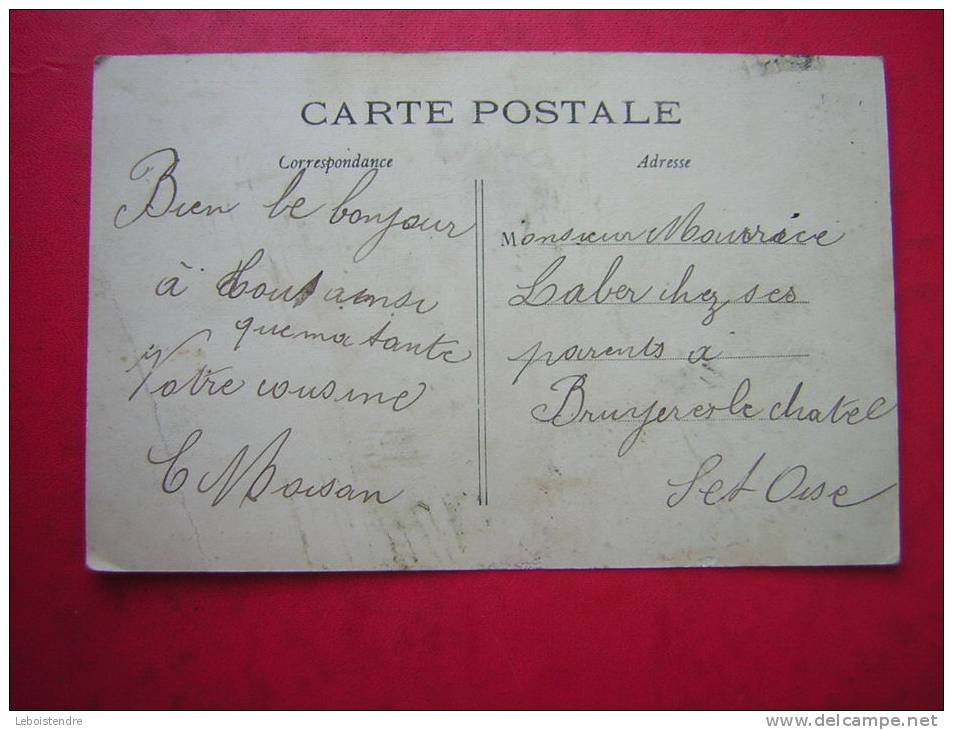 CARTE POSTALE
Correspondance
Bien le bonjour
à tous ainsi
que ma tante
Votre cousine
C Moisan
Adresse
Monsieur Maurice
Laber chez ses
parents à
Bruyeres le chatel
S et Oise
Leboistendre
www.delcampe.net